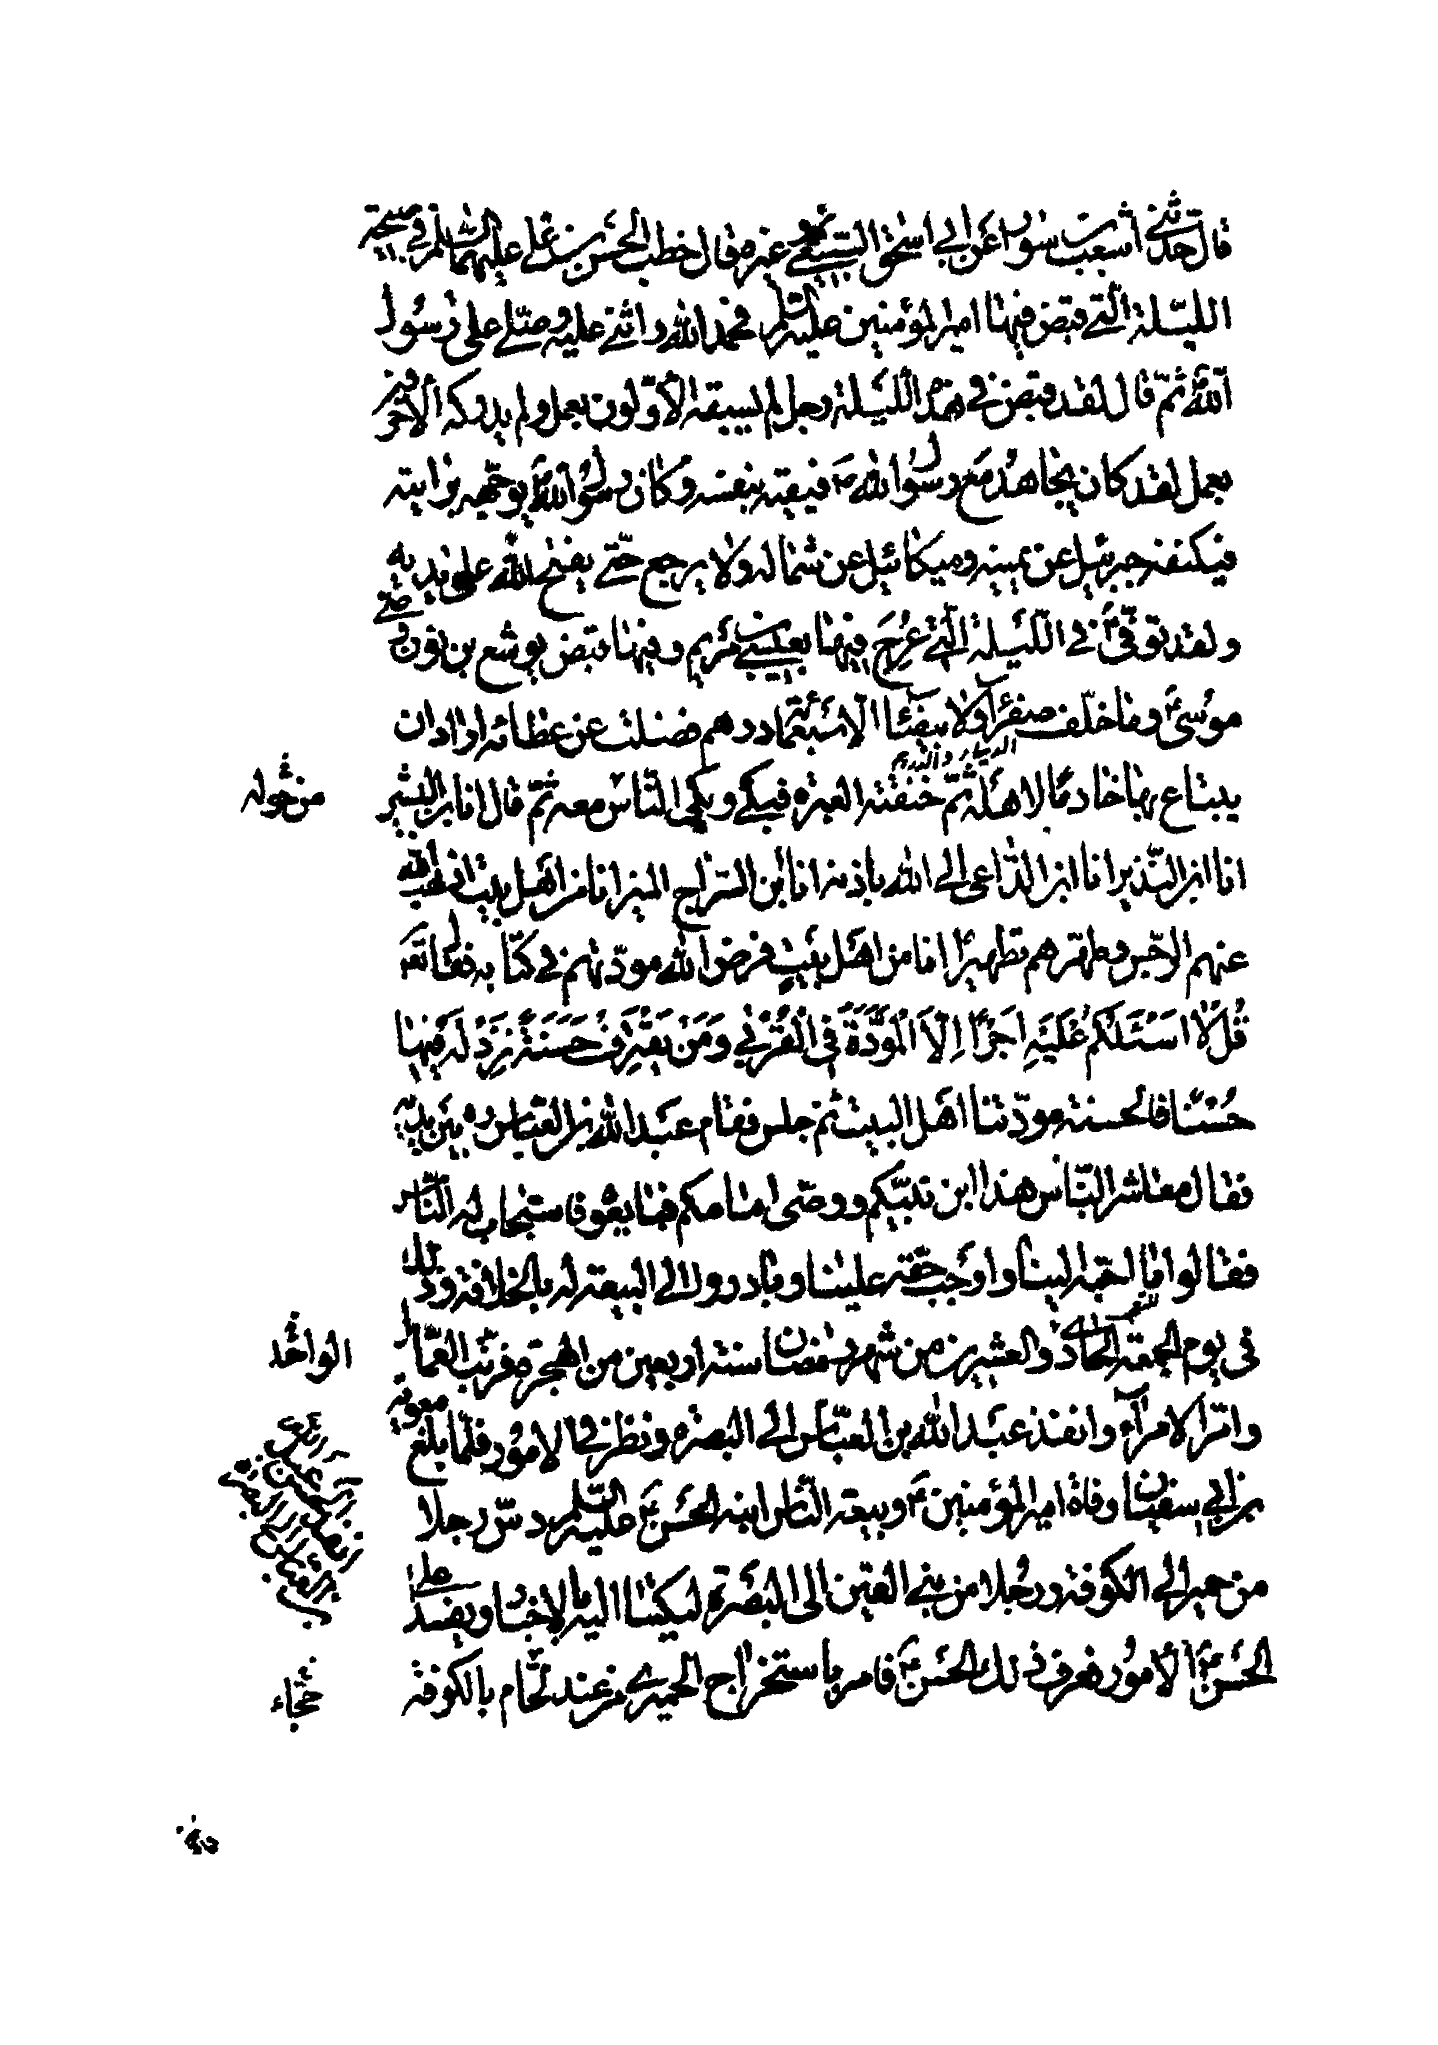 قال حدثني اشعث بن سوار عن ابي اسحق السبيعي وغيره قال خطب الحسن بن علي عليهما السلم في صبيحة
الليلة التي قبض فيها امير المؤمنين عليه السلم فحمد الله واثنى عليه وصلى على رسول
الله ثم قال لقد قبض في هذه الليلة رجل لم يسبقه الاولون بعمل ولم يدركه الاخرون
بعمل لقد كان يجاهد مع رسول الله ص فيقيه بنفسه وكان رسول الله ص يوجهه برايته
فيكنفه جبرئيل عن يمينه وميكائيل عن شماله ولا يرجع حتى يفتح الله على يديه
ولقد توفي ع في الليلة التي عرج فيها بعيسى بن مريم وفيها قبض يوشع بن نون وصي
موسى ع وما خلف صفراء ولا بيضاء الا سبعمائة درهم فضلت عن عطائه اراد ان
الدينار والدرهم
يبتاع بها خادما لاهله ثم خنقته العبرة فبكى وبكى الناس معه ثم قال انا ابن البشير
من حوله
انا ابن النذير انا ابن الداعي الى الله باذنه انا ابن السراج المنير انا من اهل بيت اذهب الله
عنهم الرجس وطهرهم تطهيرا انا من اهل بيت فرض الله مودتهم في كتابه فقال تعالى
قُل لَا اَسْئَلُكُمْ عَلَيْهِ اَجْرًا اِلَّا الْمَوَدَّةَ فِي الْقُرْبى وَمَنْ يَقْتَرِفْ حَسَنَةً نَزِدْ لَهُ فِيهَا
حُسْنًا فالحسنة مودتنا اهل البيت ثم جلس فقام عبد الله بن العباس ره بين يديه
فقال معاشر الناس هذا ابن نبيكم ووصي امامكم فبايعوه فاستجاب له الناس
فقالوا ما احبه الينا واوجب حقه علينا وبادروا الى البيعة له بالخلافة وذلك
في يوم الجمعة الحادي والعشرين من شهر رمضان سنة اربعين من الهجرة فرتب العمال
الواحد
وامر الامراء وانفذ عبد الله بن العباس الى البصرة ونظر في الامور فلما بلغ معوية
بن ابي سفيان وفاة امير المؤمنين ع وبيعة الناس ابنه الحسن عليه السلم دس رجلا
من حمير الى الكوفة ورجلا من بني القين الى البصرة ليكتبا اليه بالاخبار ويفسدا على
الحسن ع الامور فعرف ذلك الحسن ع فامر باستخراج الحميري من عند لحام بالكوفة
حجاء